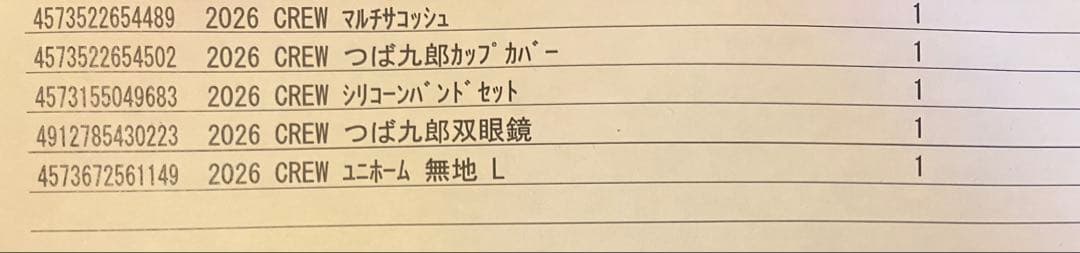 4573522654489 2026 CREW ﾏﾙﾁｻｺｯｼｭ 1
4573522654502 2026 CREW つば九郎ｶｯﾌﾟｶﾊﾞｰ 1
4573155049683 2026 CREW ｼﾘｺｰﾝﾊﾞﾝﾄﾞｾｯﾄ 1
4912785430223 2026 CREW つば九郎双眼鏡 1
4573672561149 2026 CREW ﾕﾆﾎｰﾑ 無地 L 1